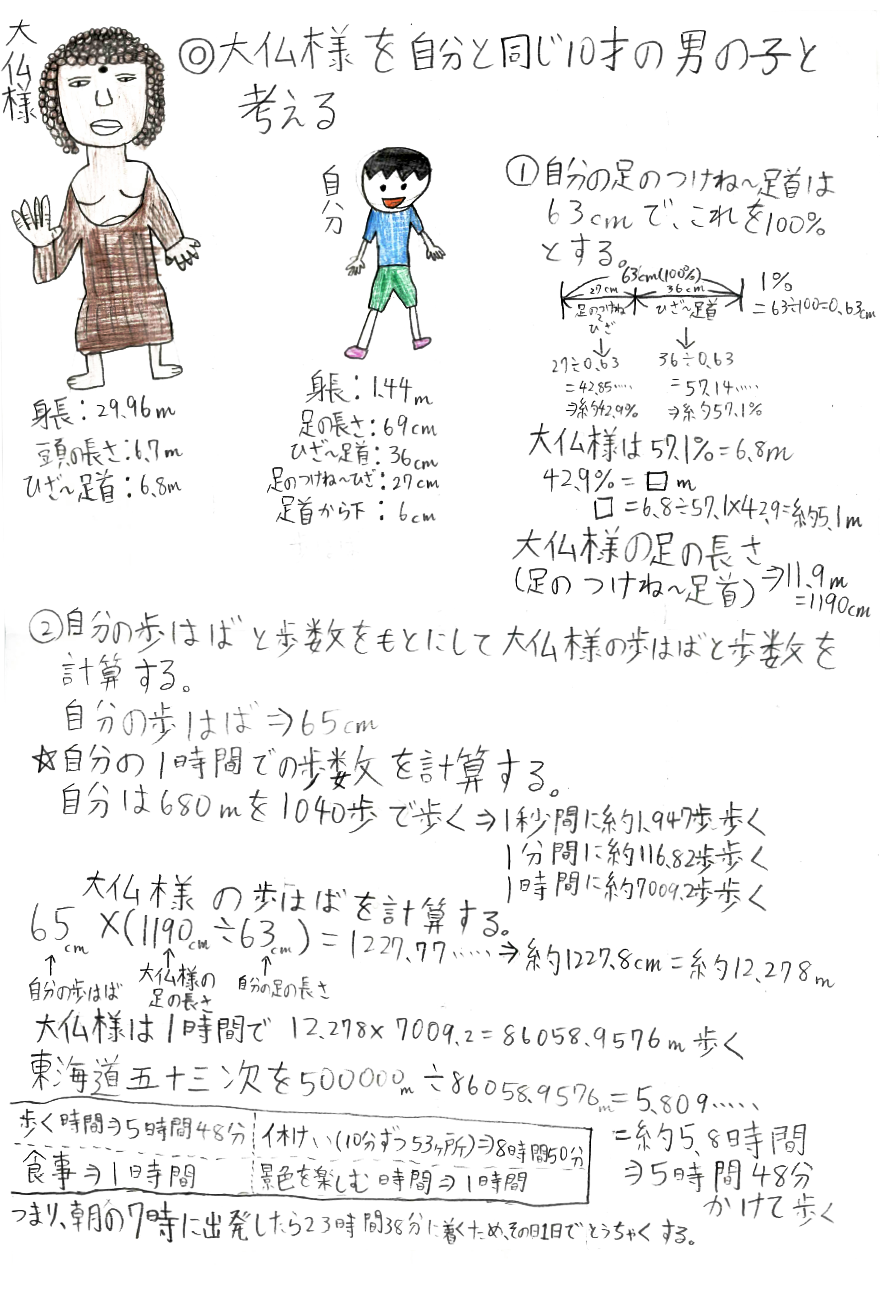 大仏様
◎大仏様を自分と同じ10才の男の子と
考える
自分
身長：29.96m
頭の長さ：6.7m
ひざ〜足首：6.8m
身長：1.44m
足の長さ：69cm
ひざ〜足首：36cm
足のつけね〜ひざ：27cm
足首から下：6cm
①自分の足のつけね〜足首は
63cmで、これを100%
とする。
63cm(100%)
27cm
36cm
足のつけね〜ひざ
ひざ〜足首
1%
=63÷100=0.63cm
27÷0.63
=42.85……
⇒約42.9%
36÷0.63
=57.14……
⇒約57.1%
大仏様は57.1%=6.8m
42.9%=□m
□=6.8÷57.1×42.9=約5.1m
大仏様の足の長さ
(足のつけね〜足首)⇒11.9m
=1190cm
②自分の歩はばと歩数をもとにして大仏様の歩はばと歩数を
計算する。
自分の歩はば⇒65cm
☆自分の1時間での歩数を計算する。
自分は680mを1040歩で歩く⇒1秒間に約1.947歩歩く
1分間に約116.82歩歩く
1時間に約7009.2歩歩く
大仏様の歩はばを計算する。
65cm×(1190cm÷63cm)=1227.77……⇒約1227.8cm=約12.278m
↑自分の歩はば
↑大仏様の足の長さ
↑自分の足の長さ
大仏様は1時間で 12.278×7009.2=86058.9576m歩く
東海道五十三次を500000m÷86058.9576m=5.809……
=約5.8時間
⇒5時間48分
かけて歩く
歩く時間⇒5時間48分
休けい(10分ずつ53ヶ所)⇒8時間50分
食事⇒1時間
景色を楽しむ時間⇒1時間
つまり、朝の7時に出発したら23時間38分に着くため、その日1日でとうちゃくする。